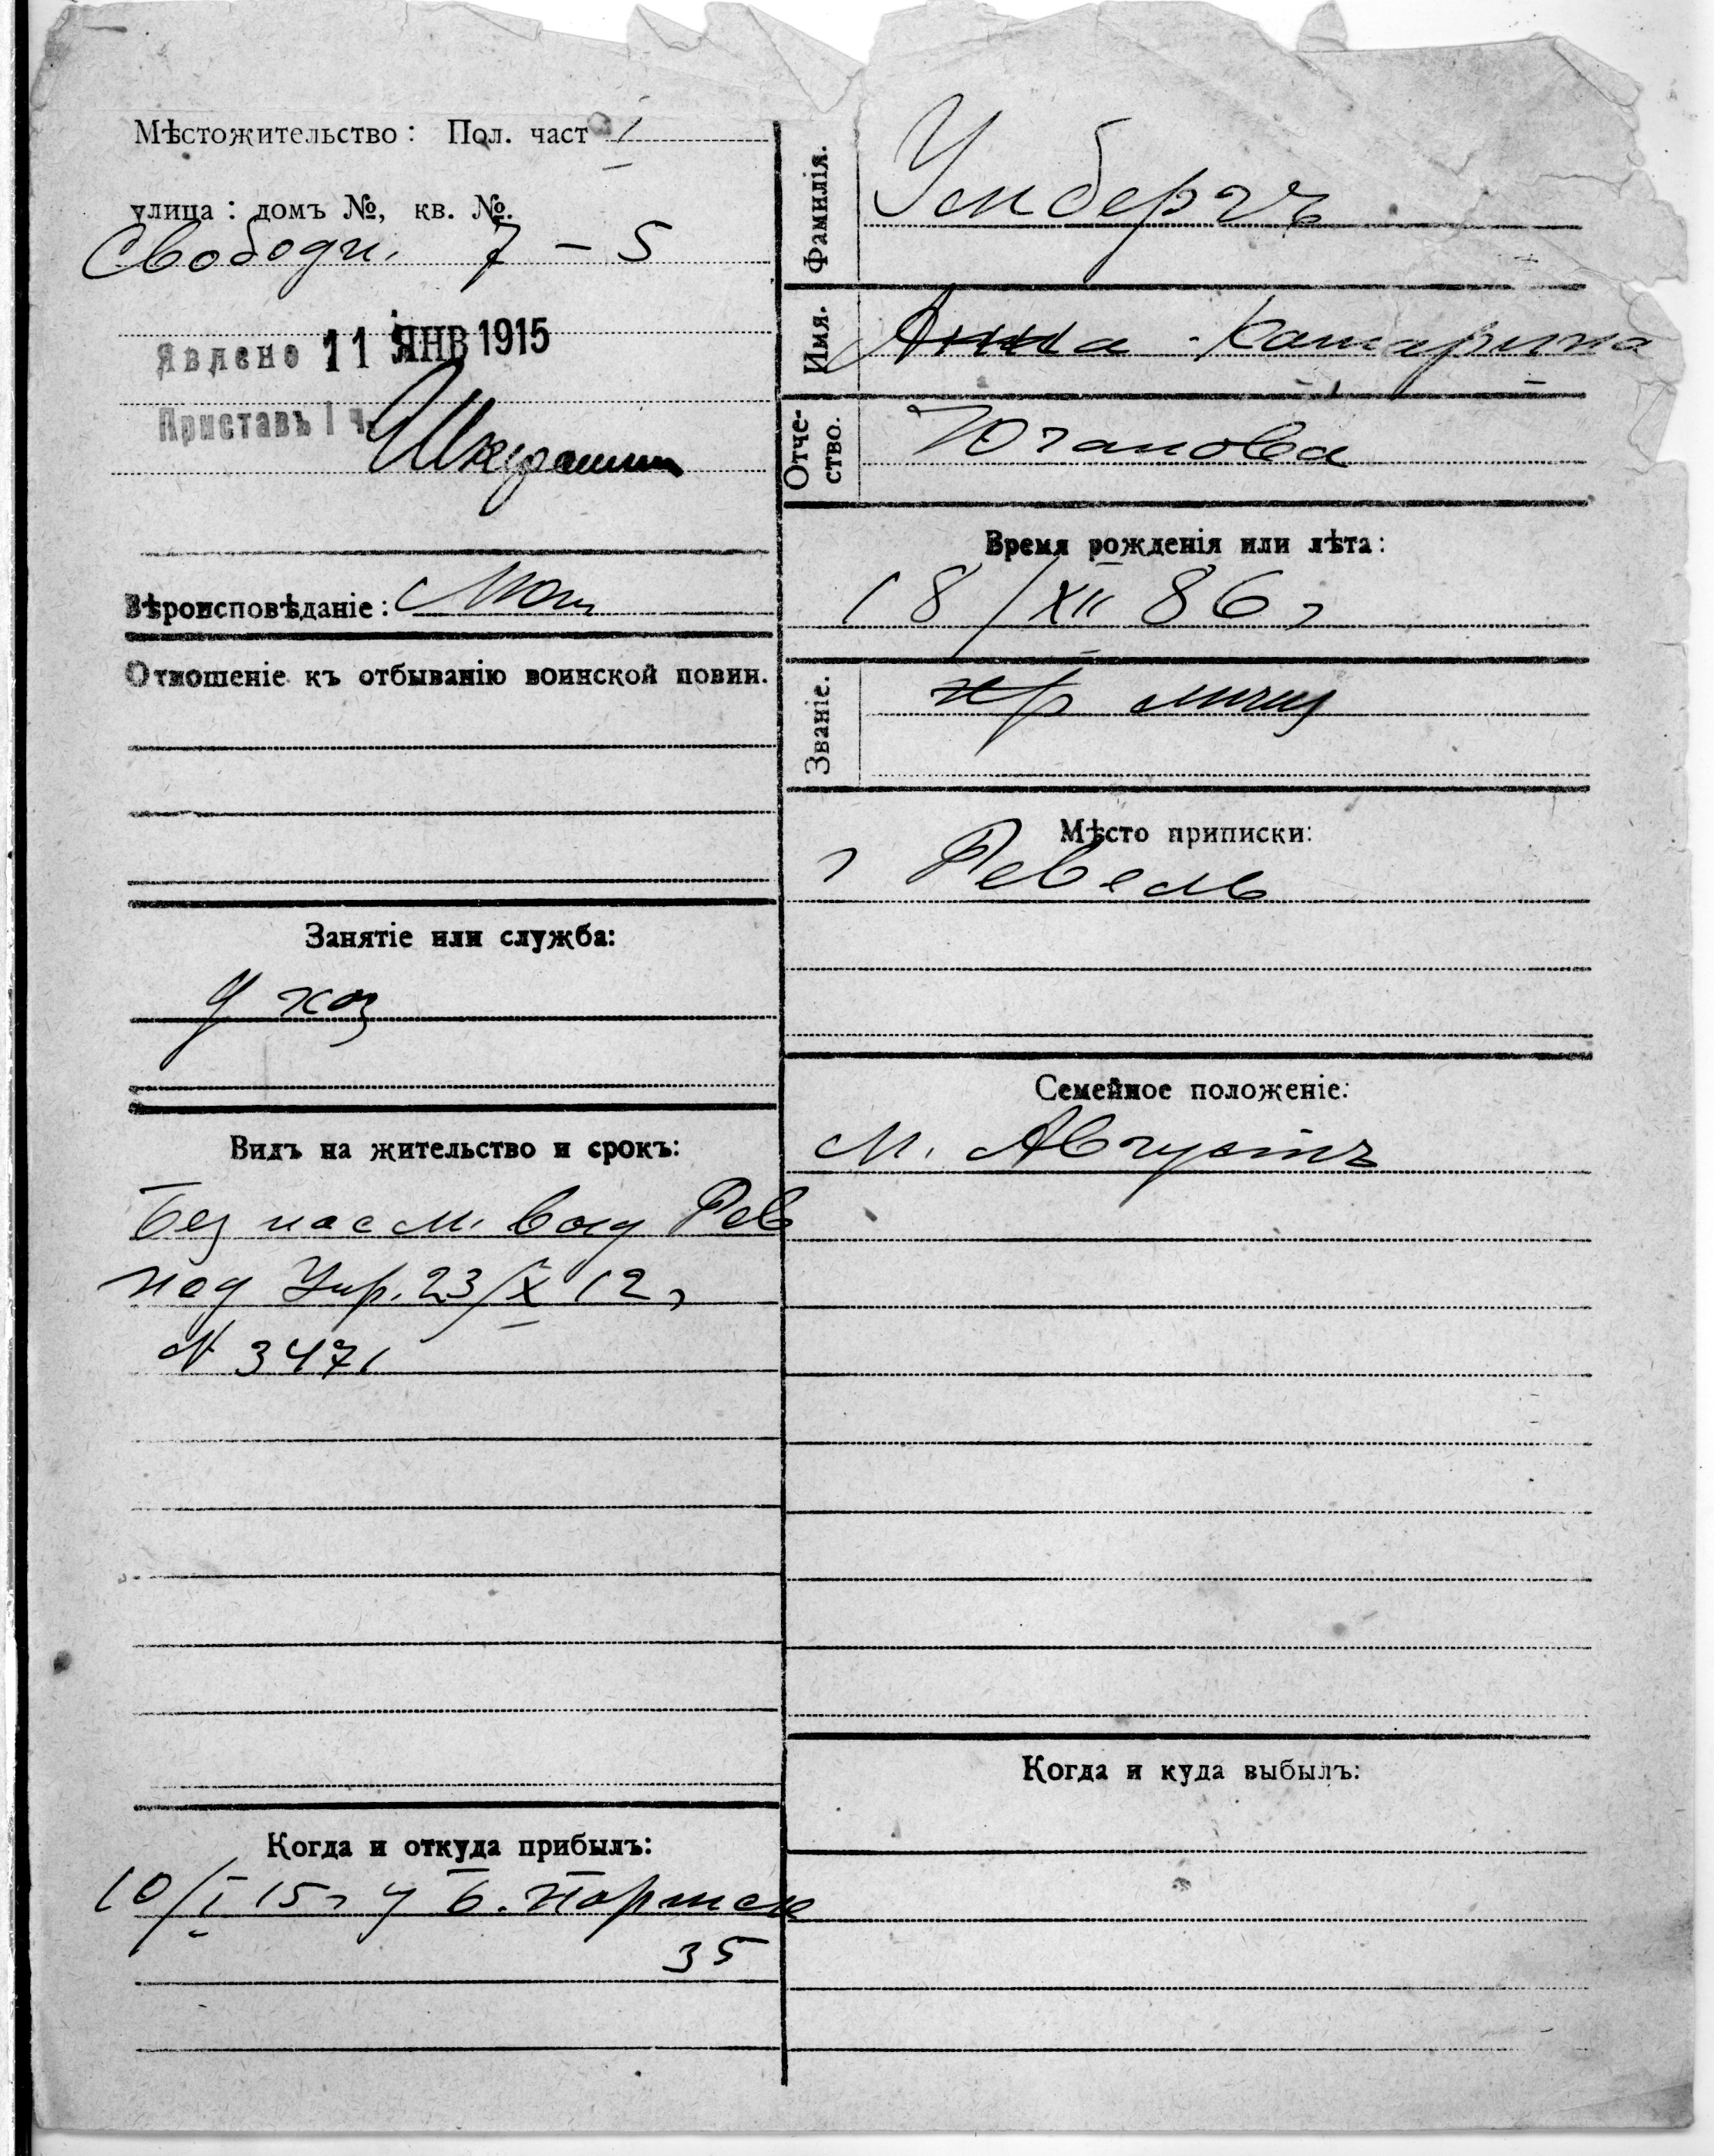 Мѣстожительство: Пол. част I
улица: домъ №, кв. №.
Свободн. 7 – 5
Явлено 11 ЯНВ 1915
Приставъ I ч.
Вѣроисповѣданіе: Лют
Отношеніе къ отбыванію воинской повин.
Занятіе или служба:
У хоз
Видъ на жительство и срокъ:
без пасп. выд Рев
под Упр. 23/X 12 г
N 3471
Когда и откуда прибылъ:
10/I 15 г у Б. Юрьевск
35
Фамилія. Умбергъ
Имя. Анна-Катарина
Отчество. Юганова
Время рожденія или лѣта:
18/XII 86 г
Званіе.
Мѣсто приписки:
г Ревель
Семейное положеніе:
М. Августъ
Когда и куда выбылъ: